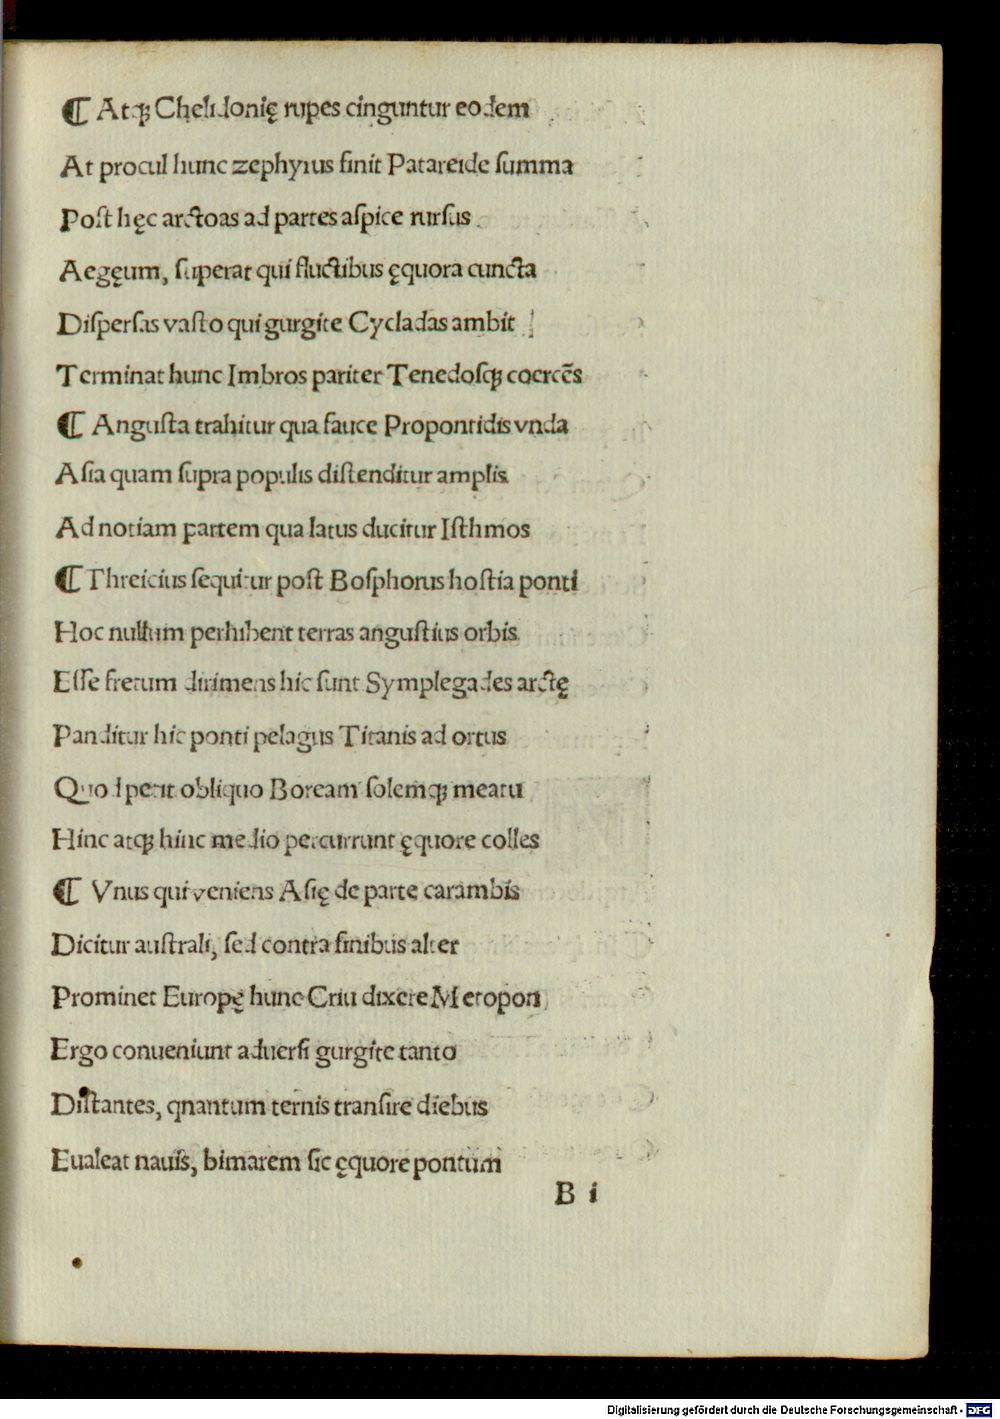 ¶ Atqꝫ Chelidonię rupes cinguntur eodem
At procul hunc zephyrus finit Patareide summa
Post hęc arctoas ad partes aspice rursus
Aegęum, superat qui fluctibus ęquora cuncta
Dispersas vasto qui gurgite Cycladas ambit
Terminat hunc Imbros pariter Tenedosqꝫ coercēs
¶ Angusta trahitur qua fauce Propontidis vnda
Asia quam supra populis distenditur amplis
Ad notiam partem qua latus ducitur Isthmos
¶ Threicius sequitur post Bosphorus hostia ponti
Hoc nullum perhibent terras angustius orbis
Esse fretum dirimens hic sunt Symplegades arctę
Panditur hic ponti pelagus Titanis ad ortus
Quod petit obliquo Boream solemqꝫ meatu
Hinc atqꝫ hinc medio percurrunt ęquore colles
¶ Vnus qui veniens Asię de parte carambis
Dicitur australi, sed contra finibus alter
Prominet Europę hunc Criu dixere Metopon
Ergo conueniunt aduersi gurgite tanto
Distantes, qnantum ternis transire diebus
Eualeat nauis, bimarem sic ęquore pontum
B i
Digitalisierung gefördert durch die Deutsche Forschungsgemeinschaft - DFG